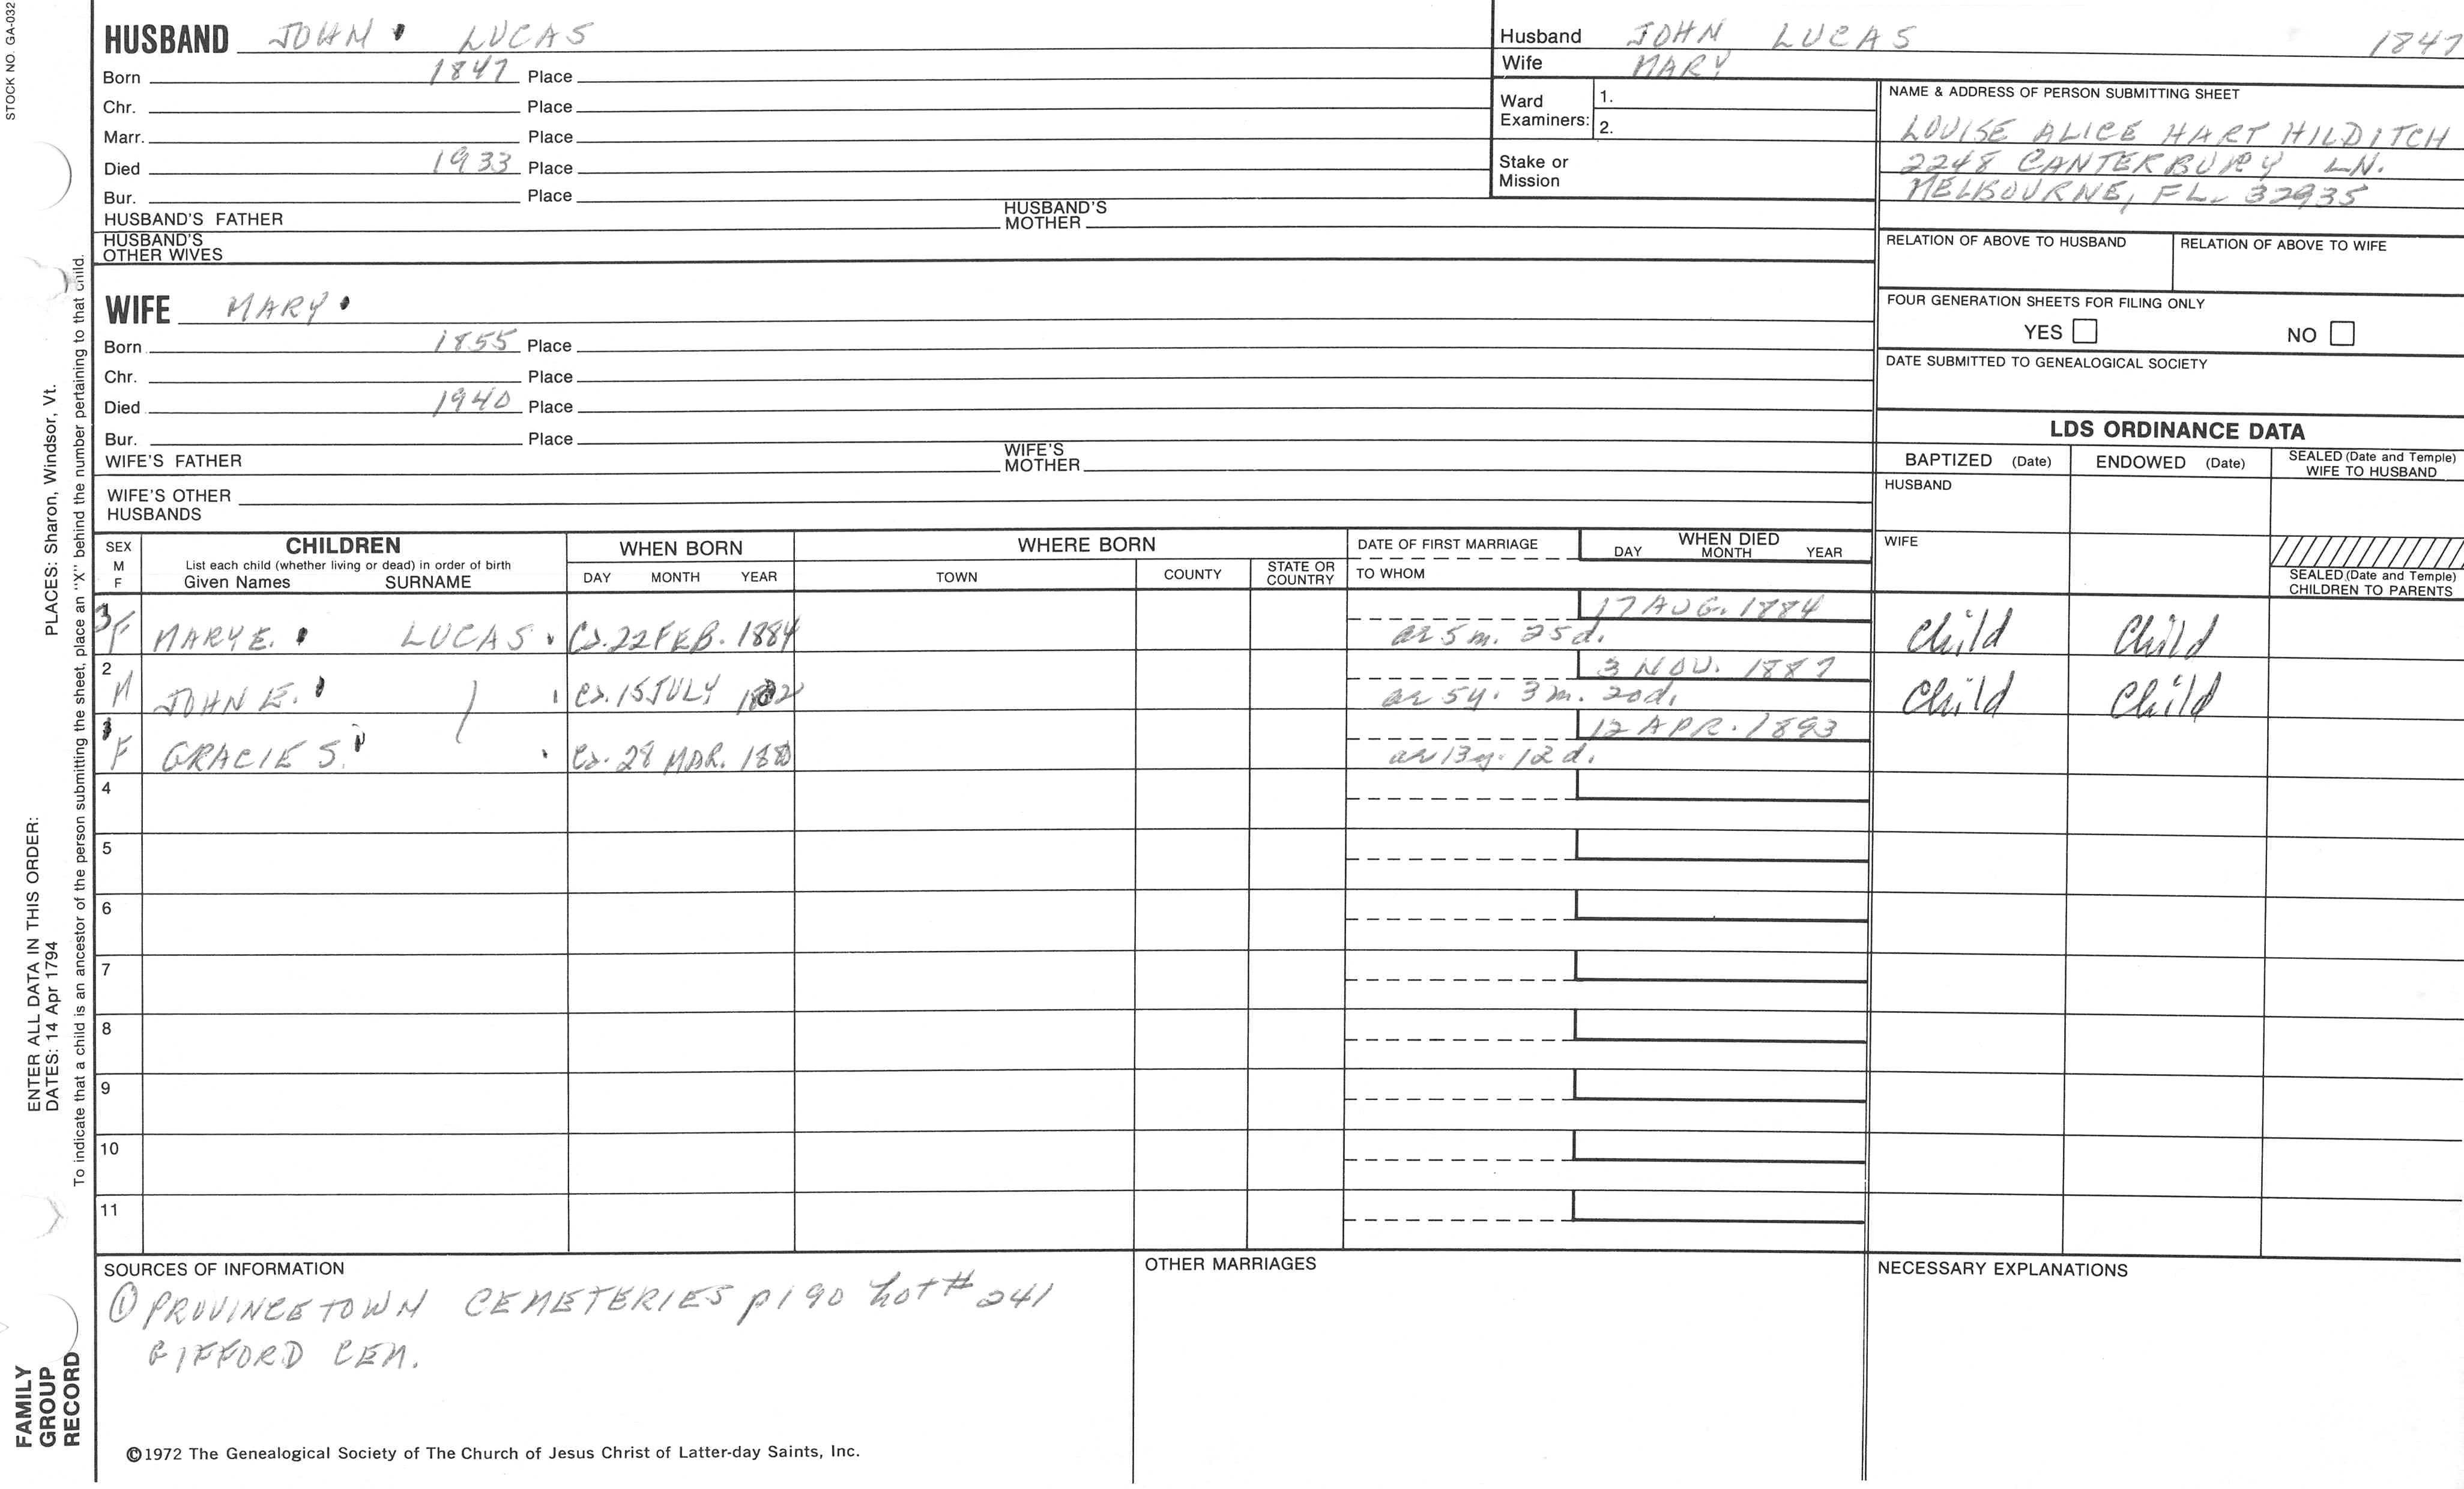 STOCK NO. GA-032
HUSBAND JOHN LUCAS
Born 1847 Place
Chr. Place
Marr. Place
Died 1933 Place
Bur. Place
HUSBAND'S FATHER HUSBAND'S MOTHER
HUSBAND'S OTHER WIVES
WIFE MARY
Born 1855 Place
Chr. Place
Died 1940 Place
Bur. Place
WIFE'S FATHER WIFE'S MOTHER
WIFE'S OTHER HUSBANDS
Husband JOHN LUCAS 1847
Wife MARY
Ward Examiners: 1.
2.
Stake or Mission
NAME & ADDRESS OF PERSON SUBMITTING SHEET
LOUISE ALICE HART HILDITCH
2248 CANTERBURY LN.
MELBOURNE, FL. 32935
RELATION OF ABOVE TO HUSBAND RELATION OF ABOVE TO WIFE
FOUR GENERATION SHEETS FOR FILING ONLY
YES NO
DATE SUBMITTED TO GENEALOGICAL SOCIETY
LDS ORDINANCE DATA
BAPTIZED (Date) ENDOWED (Date) SEALED (Date and Temple) WIFE TO HUSBAND
HUSBAND
WIFE
SEALED (Date and Temple) CHILDREN TO PARENTS
SEX M F
CHILDREN
List each child (whether living or dead) in order of birth
Given Names SURNAME
WHEN BORN
DAY MONTH YEAR
WHERE BORN
TOWN COUNTY STATE OR COUNTRY
DATE OF FIRST MARRIAGE
TO WHOM
WHEN DIED
DAY MONTH YEAR
17 AUG. 1884
3 F MARY E. LUCAS Cs. 22 FEB. 1884 ae 5 m. 25 d. Child Child
3 NOV. 1887
2 M JOHN E. Cs. 15 JULY 1882 ae 5y. 3 m. 20d. Child Child
12 APR. 1893
F GRACIE S. Cs. 28 MAR. 1880 ae 13 y. 12 d.
4
5
6
7
8
9
10
11
SOURCES OF INFORMATION
① PROVINCETOWN CEMETERIES p190 Lot # 241
GIFFORD CEM.
OTHER MARRIAGES
NECESSARY EXPLANATIONS
©1972 The Genealogical Society of The Church of Jesus Christ of Latter-day Saints, Inc.
FAMILY GROUP RECORD
ENTER ALL DATA IN THIS ORDER:
DATES: 14 Apr 1794
PLACES: Sharon, Windsor, Vt.
To indicate that a child is an ancestor of the person submitting the sheet, place an "X" behind the number pertaining to that child.